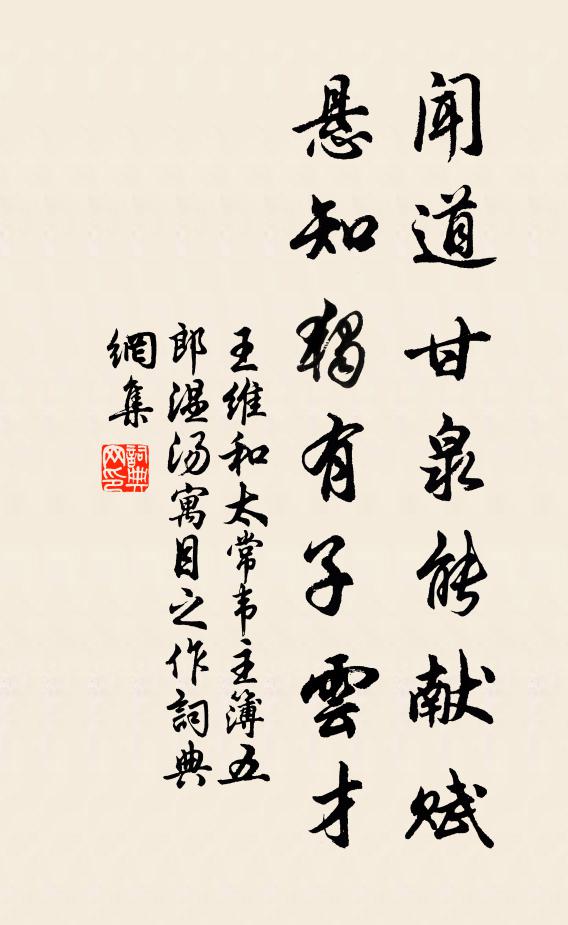 闻道甘泉能献赋
悬知独有子雲才
王维和太常韦主簿五
郎温汤寓目之作詞典
網集
詞典
网印